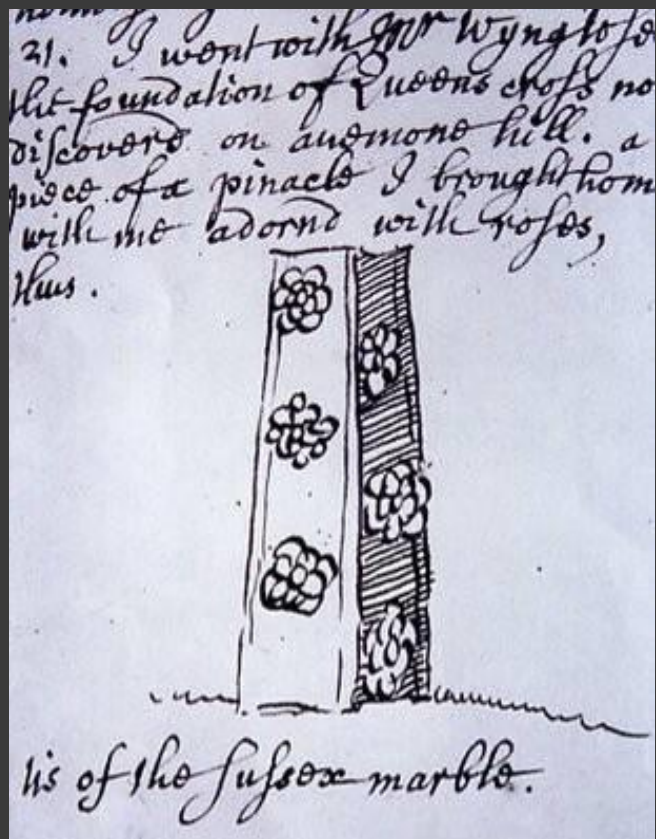 21. I went with Mr Wyng to se
the foundation of Queens cross no
discovered on anemone hill. a
piece of a pinacle I brought hom
with me adornd with roses,
thus.
tis of the sussex marble.